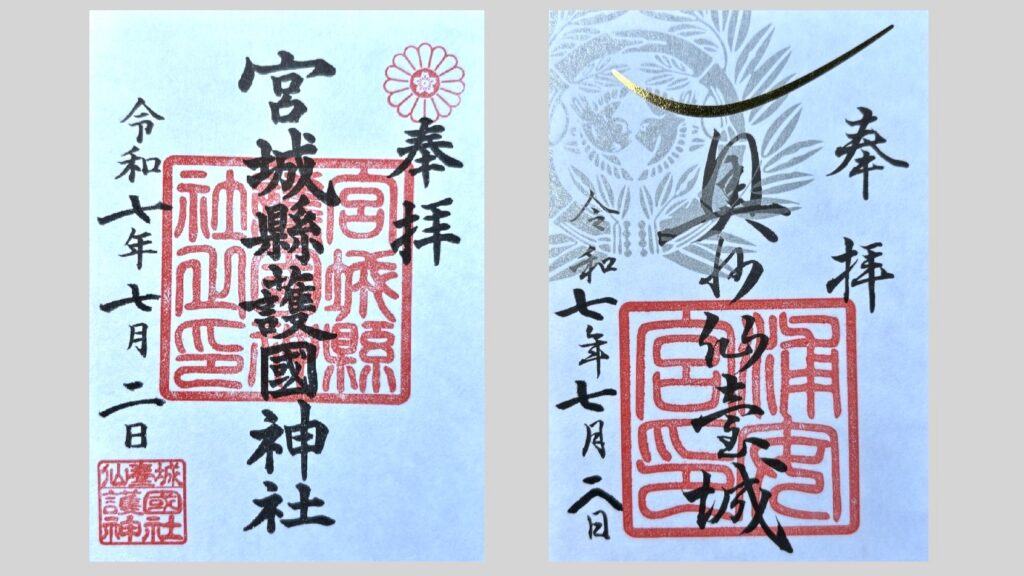 奉拝
宮城縣護國神社
宮城縣
社之印
令和七年七月二日
仙臺城
護國
神社
奉拝
奥州仙臺城
浦安
宮印
令和七年七月二日